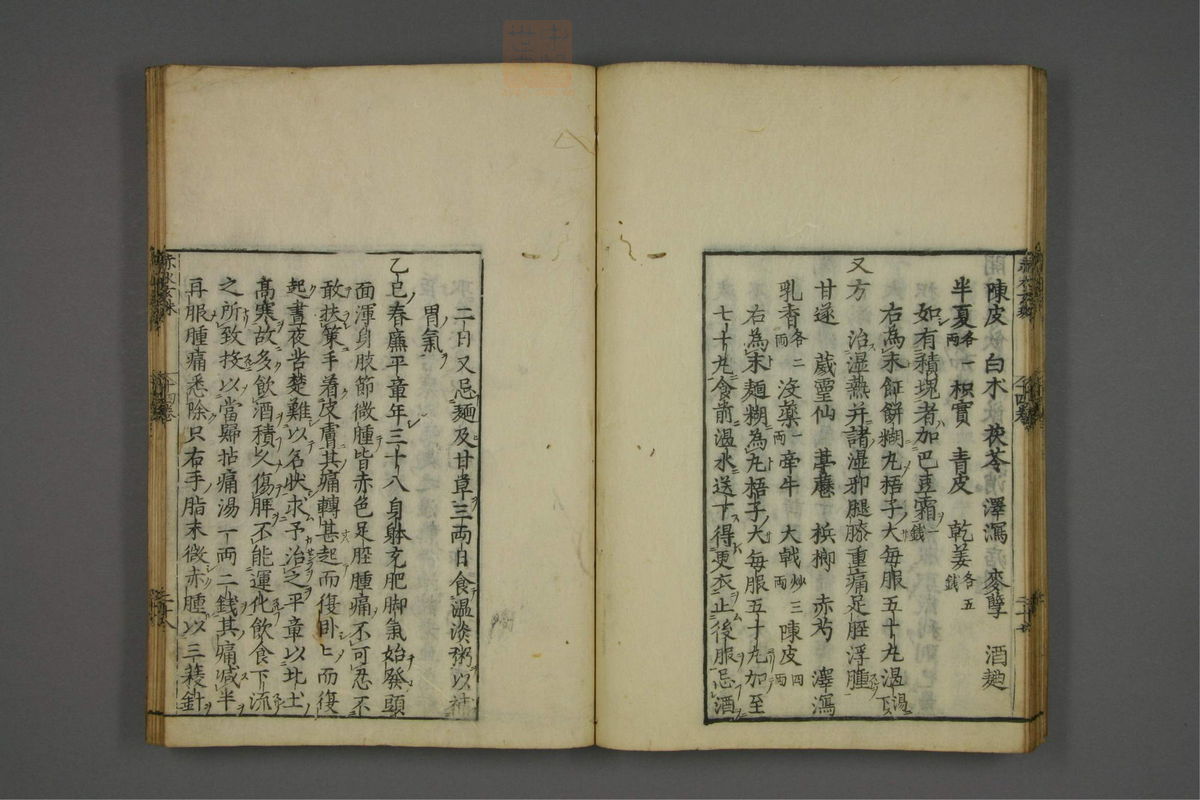 陳皮 白朮 茯苓 澤瀉 麥蘖 酒麯
半夏各一兩 枳實 青皮 乾姜各五錢
如有積塊者加巴豆霜一錢
右為末𩜾餅糊丸梧子大每服五十丸温湯下
又方 治湿熱并諸湿邪腿膝重痛足脛浮腫
甘遂 葳靈仙 葶藶 梹榔 赤芍 澤瀉
乳香各二兩 沒藥一兩 牽牛 大戟炒三兩 陳皮四兩
右為末麺糊為丸梧子大每服五十丸加至
七十丸食前温水送下得更衣止後服忌酒
二日又忌麺及甘草三両日食温淡粥以補
胃氣
乙巳春廉平章年三十八身躰充肥脚氣始發頭
面渾身肢節微腫皆赤色足脛腫痛不可忍不
敢扶策手着皮膚其痛轉甚起而復卧卧而復
起晝夜苦楚難以名狀求予治之平章以北土
高寒故多飲酒積久傷脾不能運化飲食下流
之所致投以當歸拈痛湯一両二錢其痛減半
再服腫痛悉除只右手脂末微赤腫以三䔖針